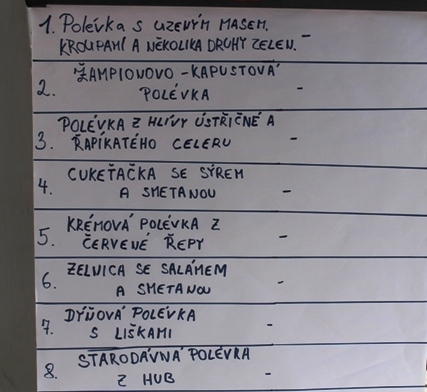 1. Polévka s uzeným masem,
kroupami a několika druhy zelen. -
2. Žampionovo - kapustová
polévka -
3. Polévka z hlívy ústřičné a
řapíkatého celeru -
4. Cukeťačka se sýrem
a smetanou -
5. Krémová polévka z
červené řepy -
6. Zelnica se salámem
a smetanou -
7. Dýňová polévka
s liškami -
8. Starodávná polévka
z hub -